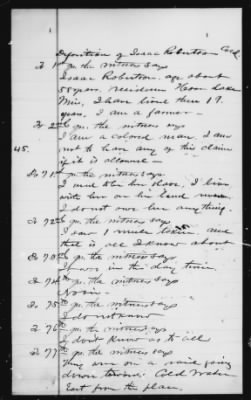 Deposition of Isaac Robertson Cold
To 1st qu. the witness says
Isaac Robertson. age about
55 years. residence Horn Lake
Miss, I have lived there 19
years. I am a farmer —
To 2d qu. the witness says
I am a colored man. I am
not to have any of this claim
if it is allowed —
45.
To 71st qu. the witness says
I lived with
with him on his land
I do not owe him anything
To 72d qu. the witness says
I saw 1 mule taken. and
that is all I know about
To 73d qu. the witness says
It was in the day time
To 74th qu. the witness says
To 75th qu. the witness says
I do not know
To 76th qu. the witness says
I don't know as to all
To 77th qu. the witness says
They were on a raid going
down toward Cold Water
East from the place.